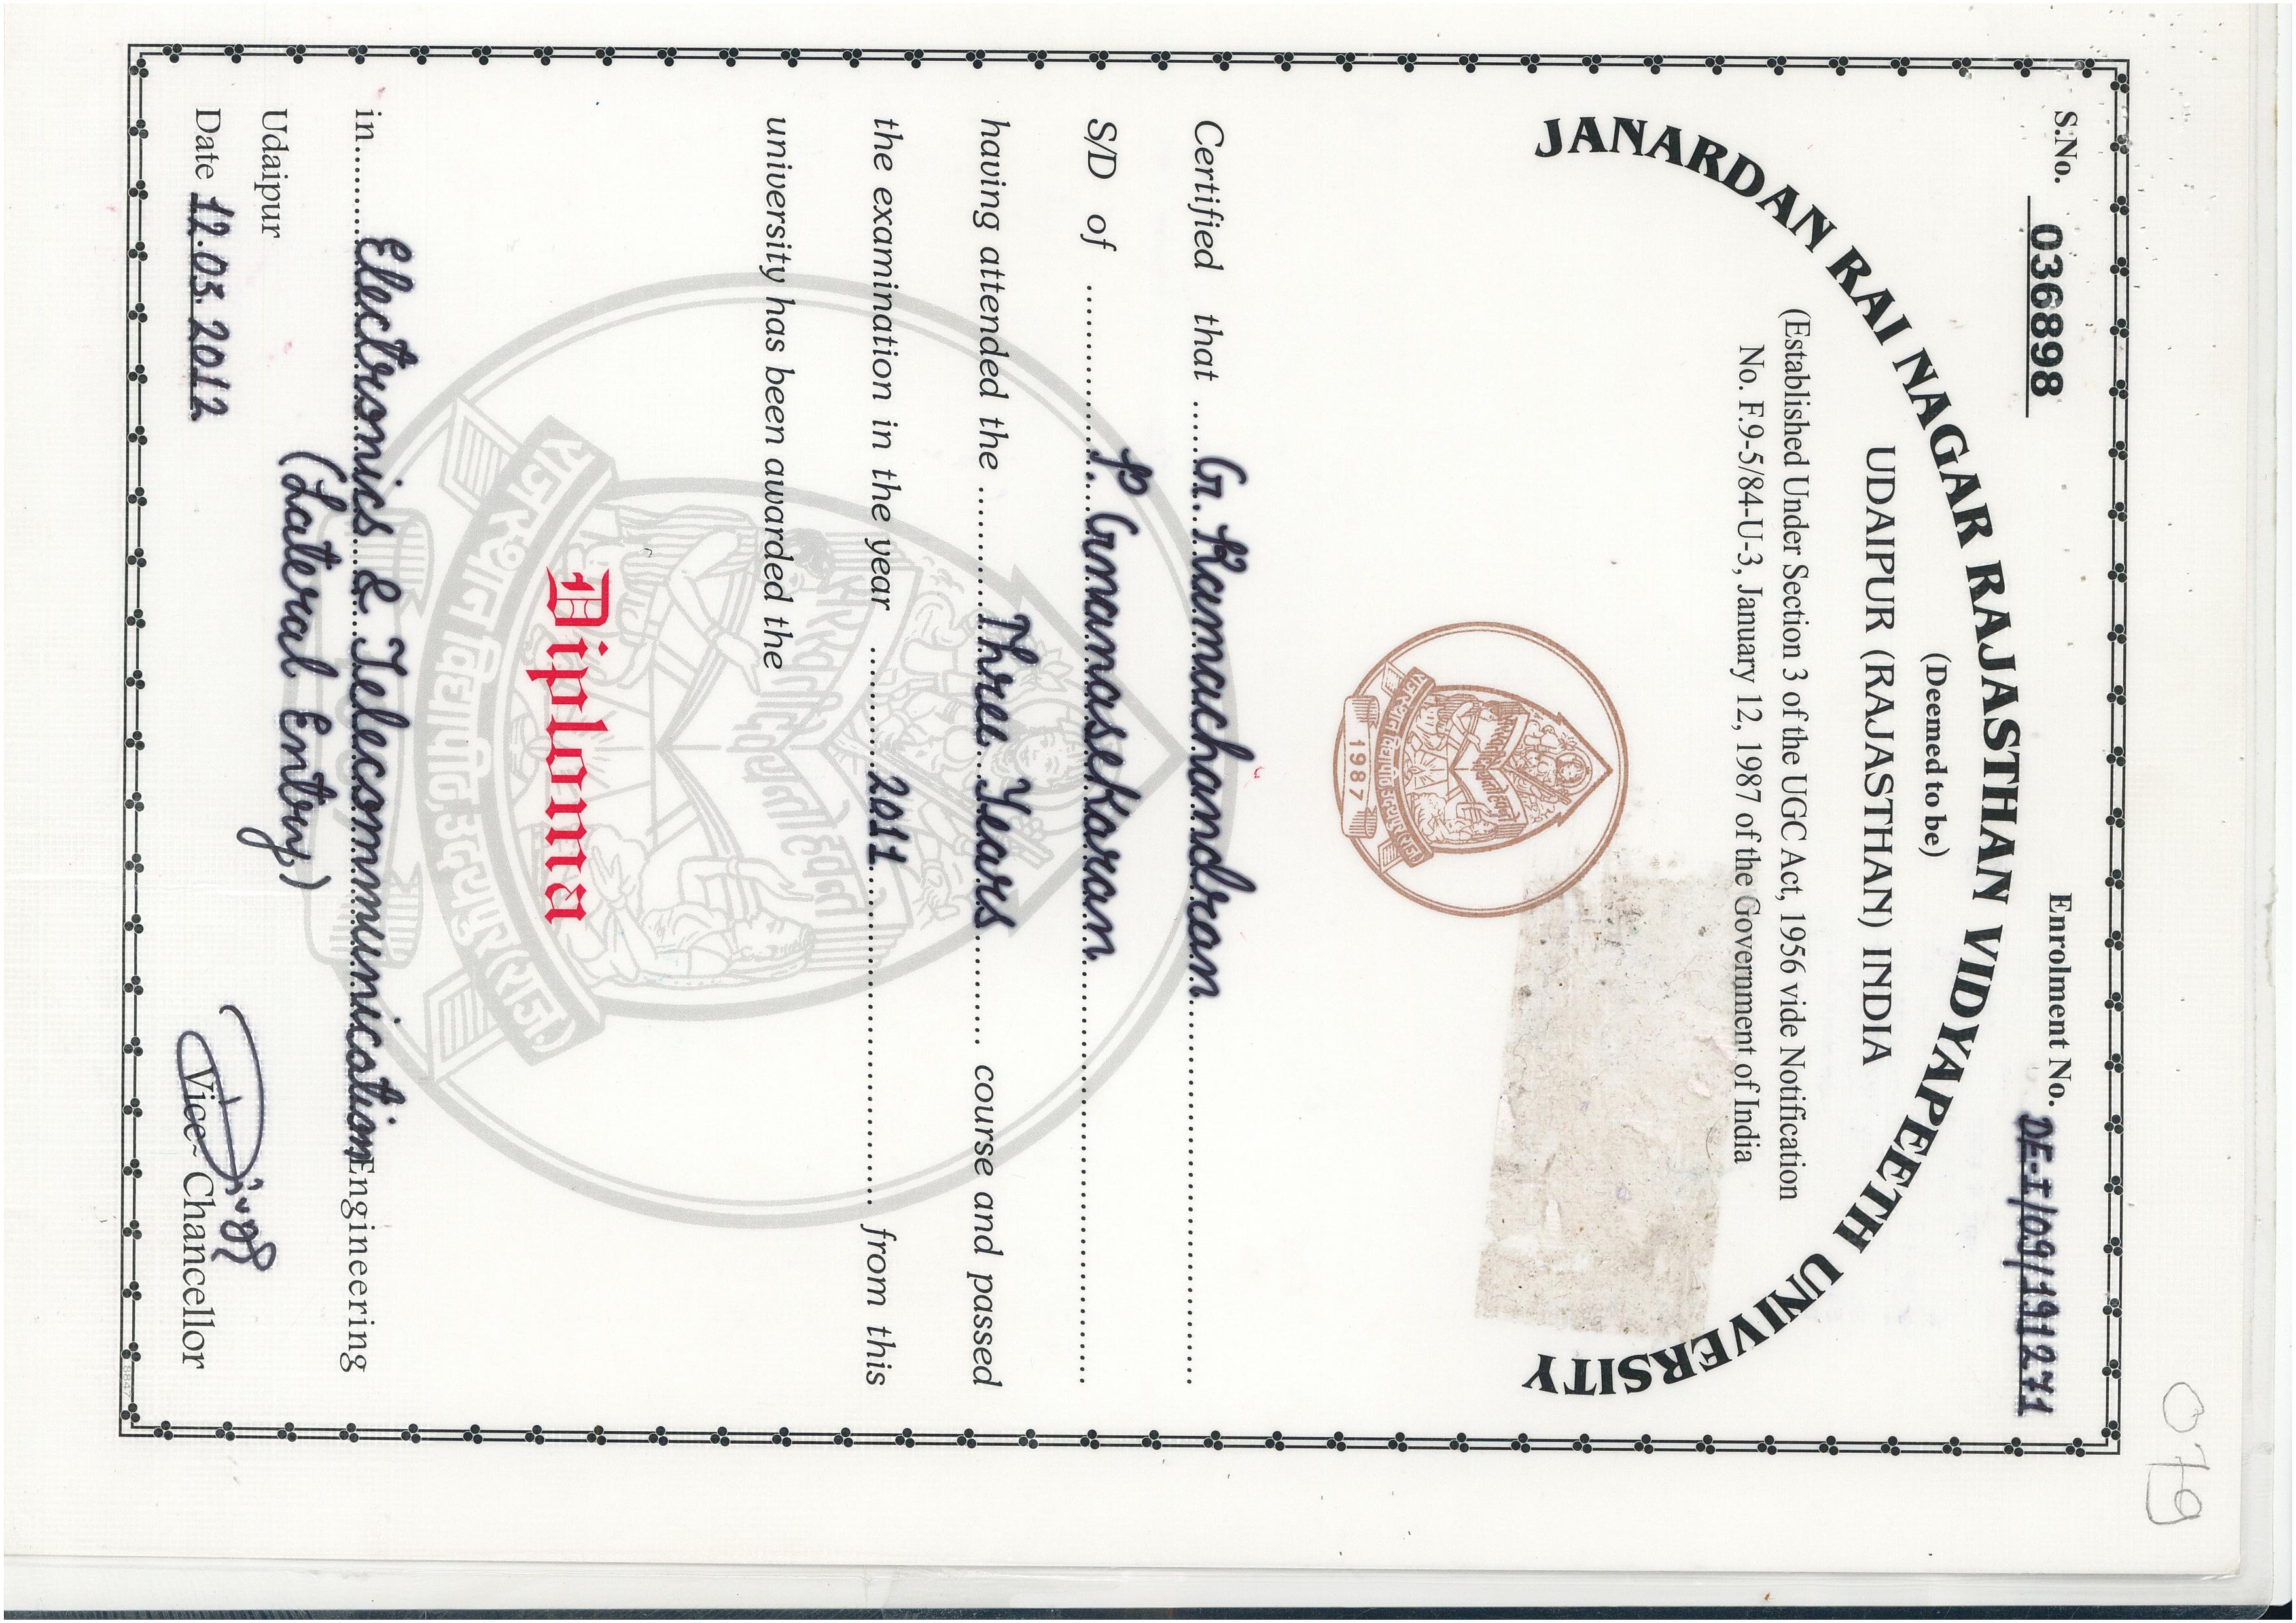 S.No. 036898 Enrolment No. DE-I/09/191271
JANARDAN RAI NAGAR RAJASTHAN VIDYAPEETH UNIVERSITY
(Deemed to be)
UDAIPUR (RAJASTHAN) INDIA
(Established Under Section 3 of the UGC Act, 1956 vide Notification
No. F.9-5/84-U-3, January 12, 1987 of the Government of India
1987
Certified that G. Ramachandran
S/D of P Gnanasekaran
having attended the Three Years course and passed
the examination in the year 2011 from this
university has been awarded the
Diploma
राजस्थान विद्यापीठ उदयपुर (राज.)
in Electronics & Telecommunication Engineering
(Lateral Entry)
Udaipur
Date 12.03.2012 Vice-Chancellor
079